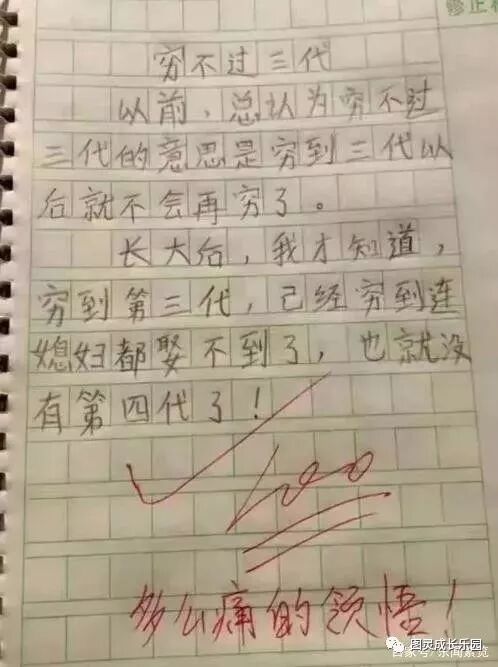 修正
穷不过三代
以前,总认为穷不过
三代的意思是穷到三代以
后就不会再穷了。
长大后,我才知道,
穷到第三代,已经穷到连
媳妇都娶不到了,也就没
有第四代了!
100
多么痛的领悟!
图灵成长乐园